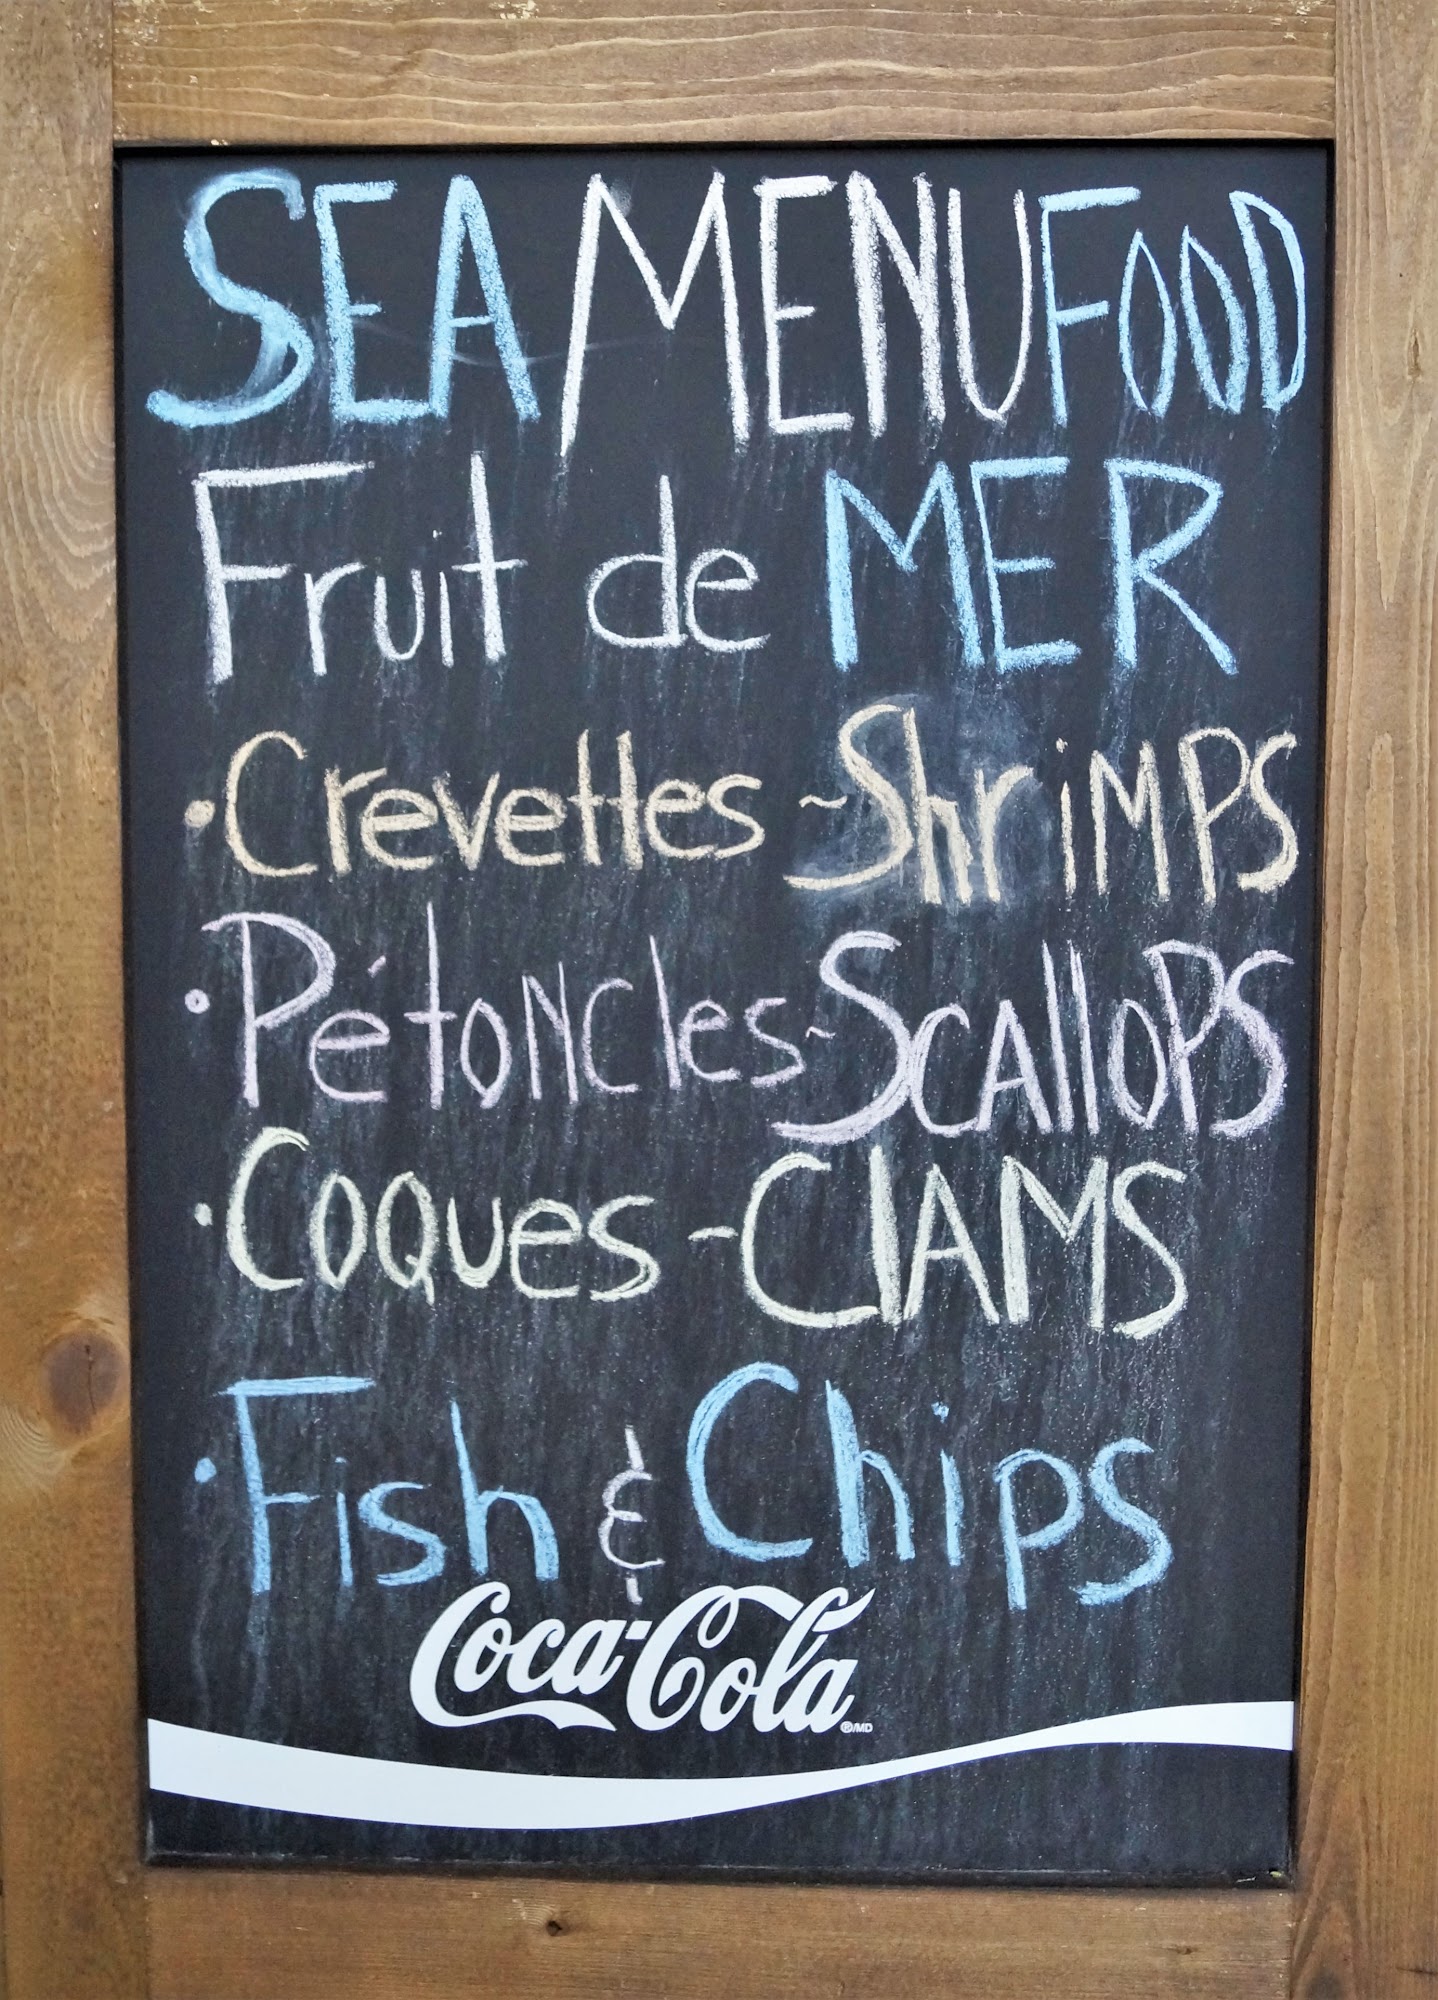 SEA MENU FOOD
Fruit de MER
• Crevettes ~ ShriMPS
• PétoNcles ~ ScAlloPS
• CoQues - ClAMS
• Fish & Chips
Coca-Cola ®/MD